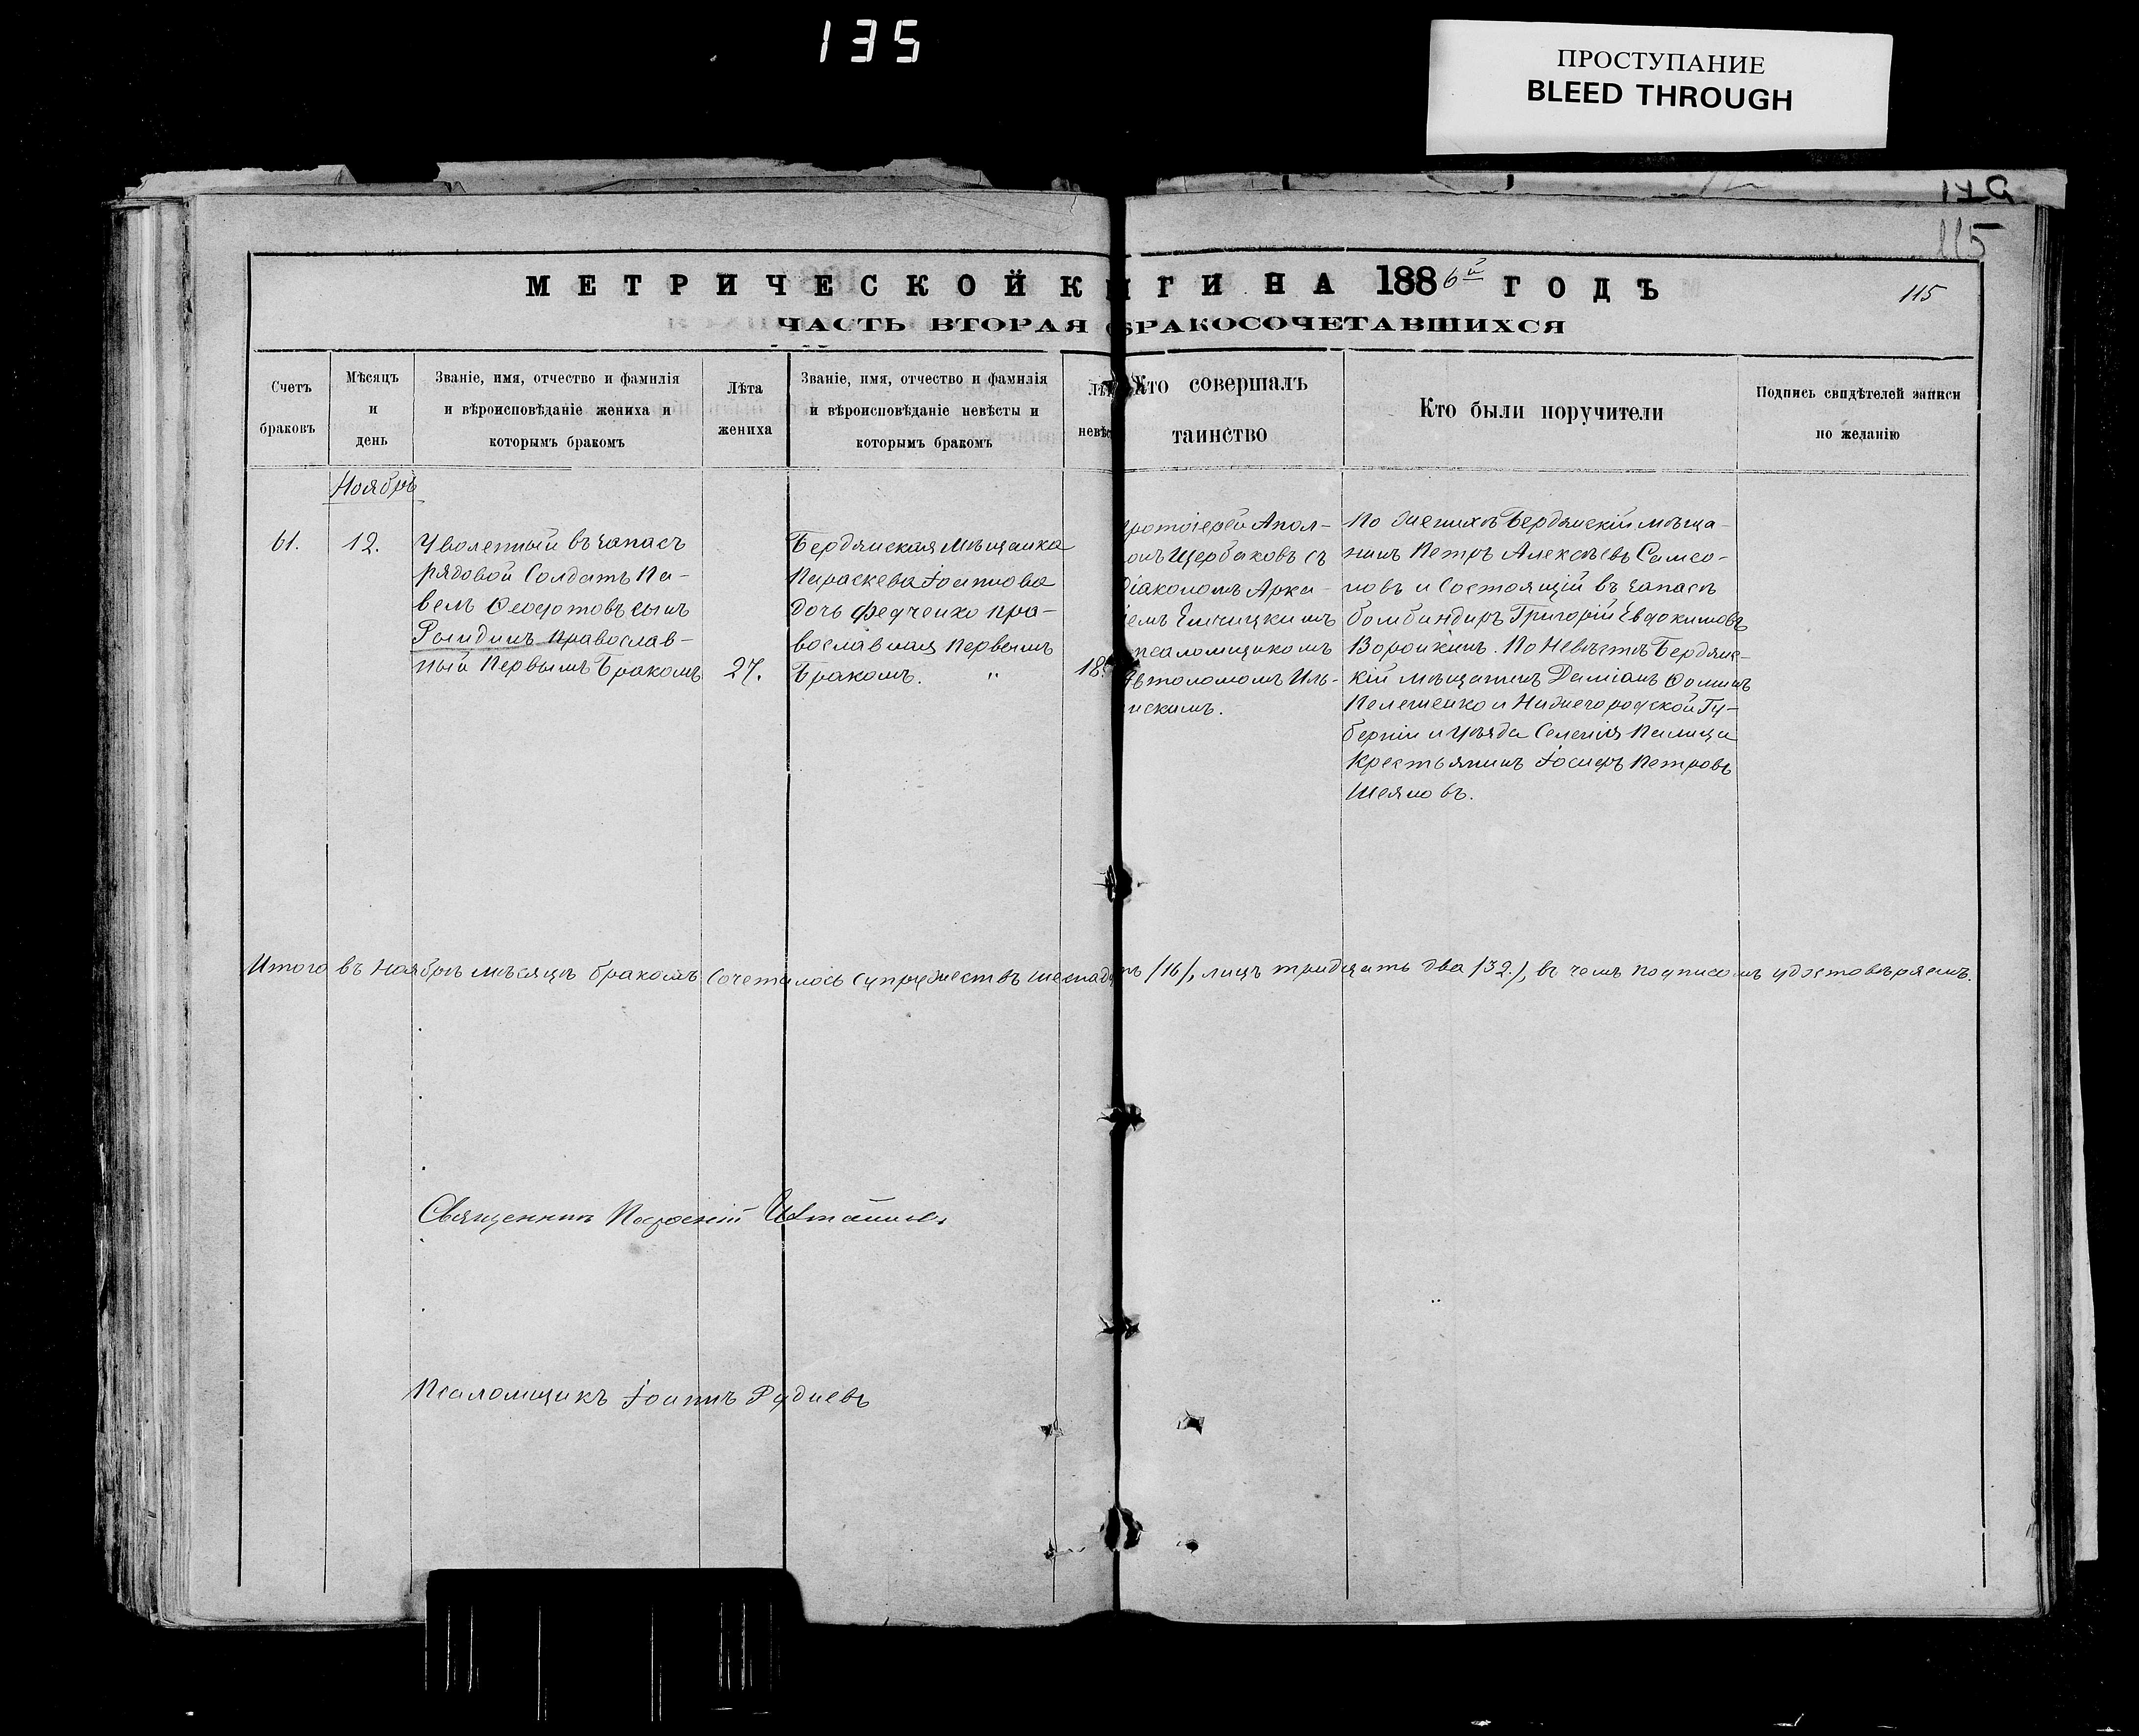 135
ПРОСТУПАНИЕ
BLEED THROUGH
115
МЕТРИЧЕСКОЙ КНИГИ НА 1886й ГОДЪ
115
ЧАСТЬ ВТОРАЯ О БРАКОСОЧЕТАВШИХСЯ
Счетъ
браковъ
Мѣсяцъ
и
день
Званіе, имя, отчество и фамилія
и вѣроисповѣданіе жениха и
которымъ бракомъ
Лѣта
жениха
Званіе, имя, отчество и фамилія
и вѣроисповѣданіе невѣсты и
которымъ бракомъ
Лѣ
невѣс
Кто совершалъ
таинство
Кто были поручители
Подпись свидѣтелей записи
по желанію
Ноябрь
61.
12.
Уволенный въ запасъ
рядовой Солдатъ Па-
велъ Ѳеодотовъ сынъ
православ-
ный Первымъ Бракомъ
27.
Бердянская Мѣщанка
Параскева Іоаннова
дочь Федченко пра-
вославная Первымъ
Бракомъ. "
18.
ротоіерей Апол-
онъ Щербаковъ съ
діакономъ Арка-
іемъ
псаломщикомъ
втономомъ Иль-
инскимъ.
По Женихѣ Бердянскій мѣща-
нинъ Петръ Алексѣевъ Самсо-
новъ и Состоящій въ запасѣ
бомбандиръ Григорій Евдокимовъ
Воронкинъ. По Невѣстѣ Бердянс-
кій мѣщанинъ Даміанъ Ѳоминъ
Пелешенко и Нижегородской Гу-
берніи и Уѣзда Селенія Палица
Крестьянинъ Іосифъ Петровъ
Шеяновъ.
Итого въ Ноябрѣ мѣсяцѣ бракомъ сочеталось супружествъ шестнадцать /16/, лицъ тридцать два /32./, въ чемъ подписомъ удостовѣряемъ.
Священникъ
Псаломщикъ Іоаннъ Рудневъ